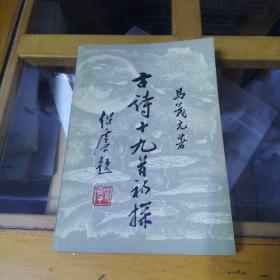 马茂元著
古诗十九首初探
绍虞题